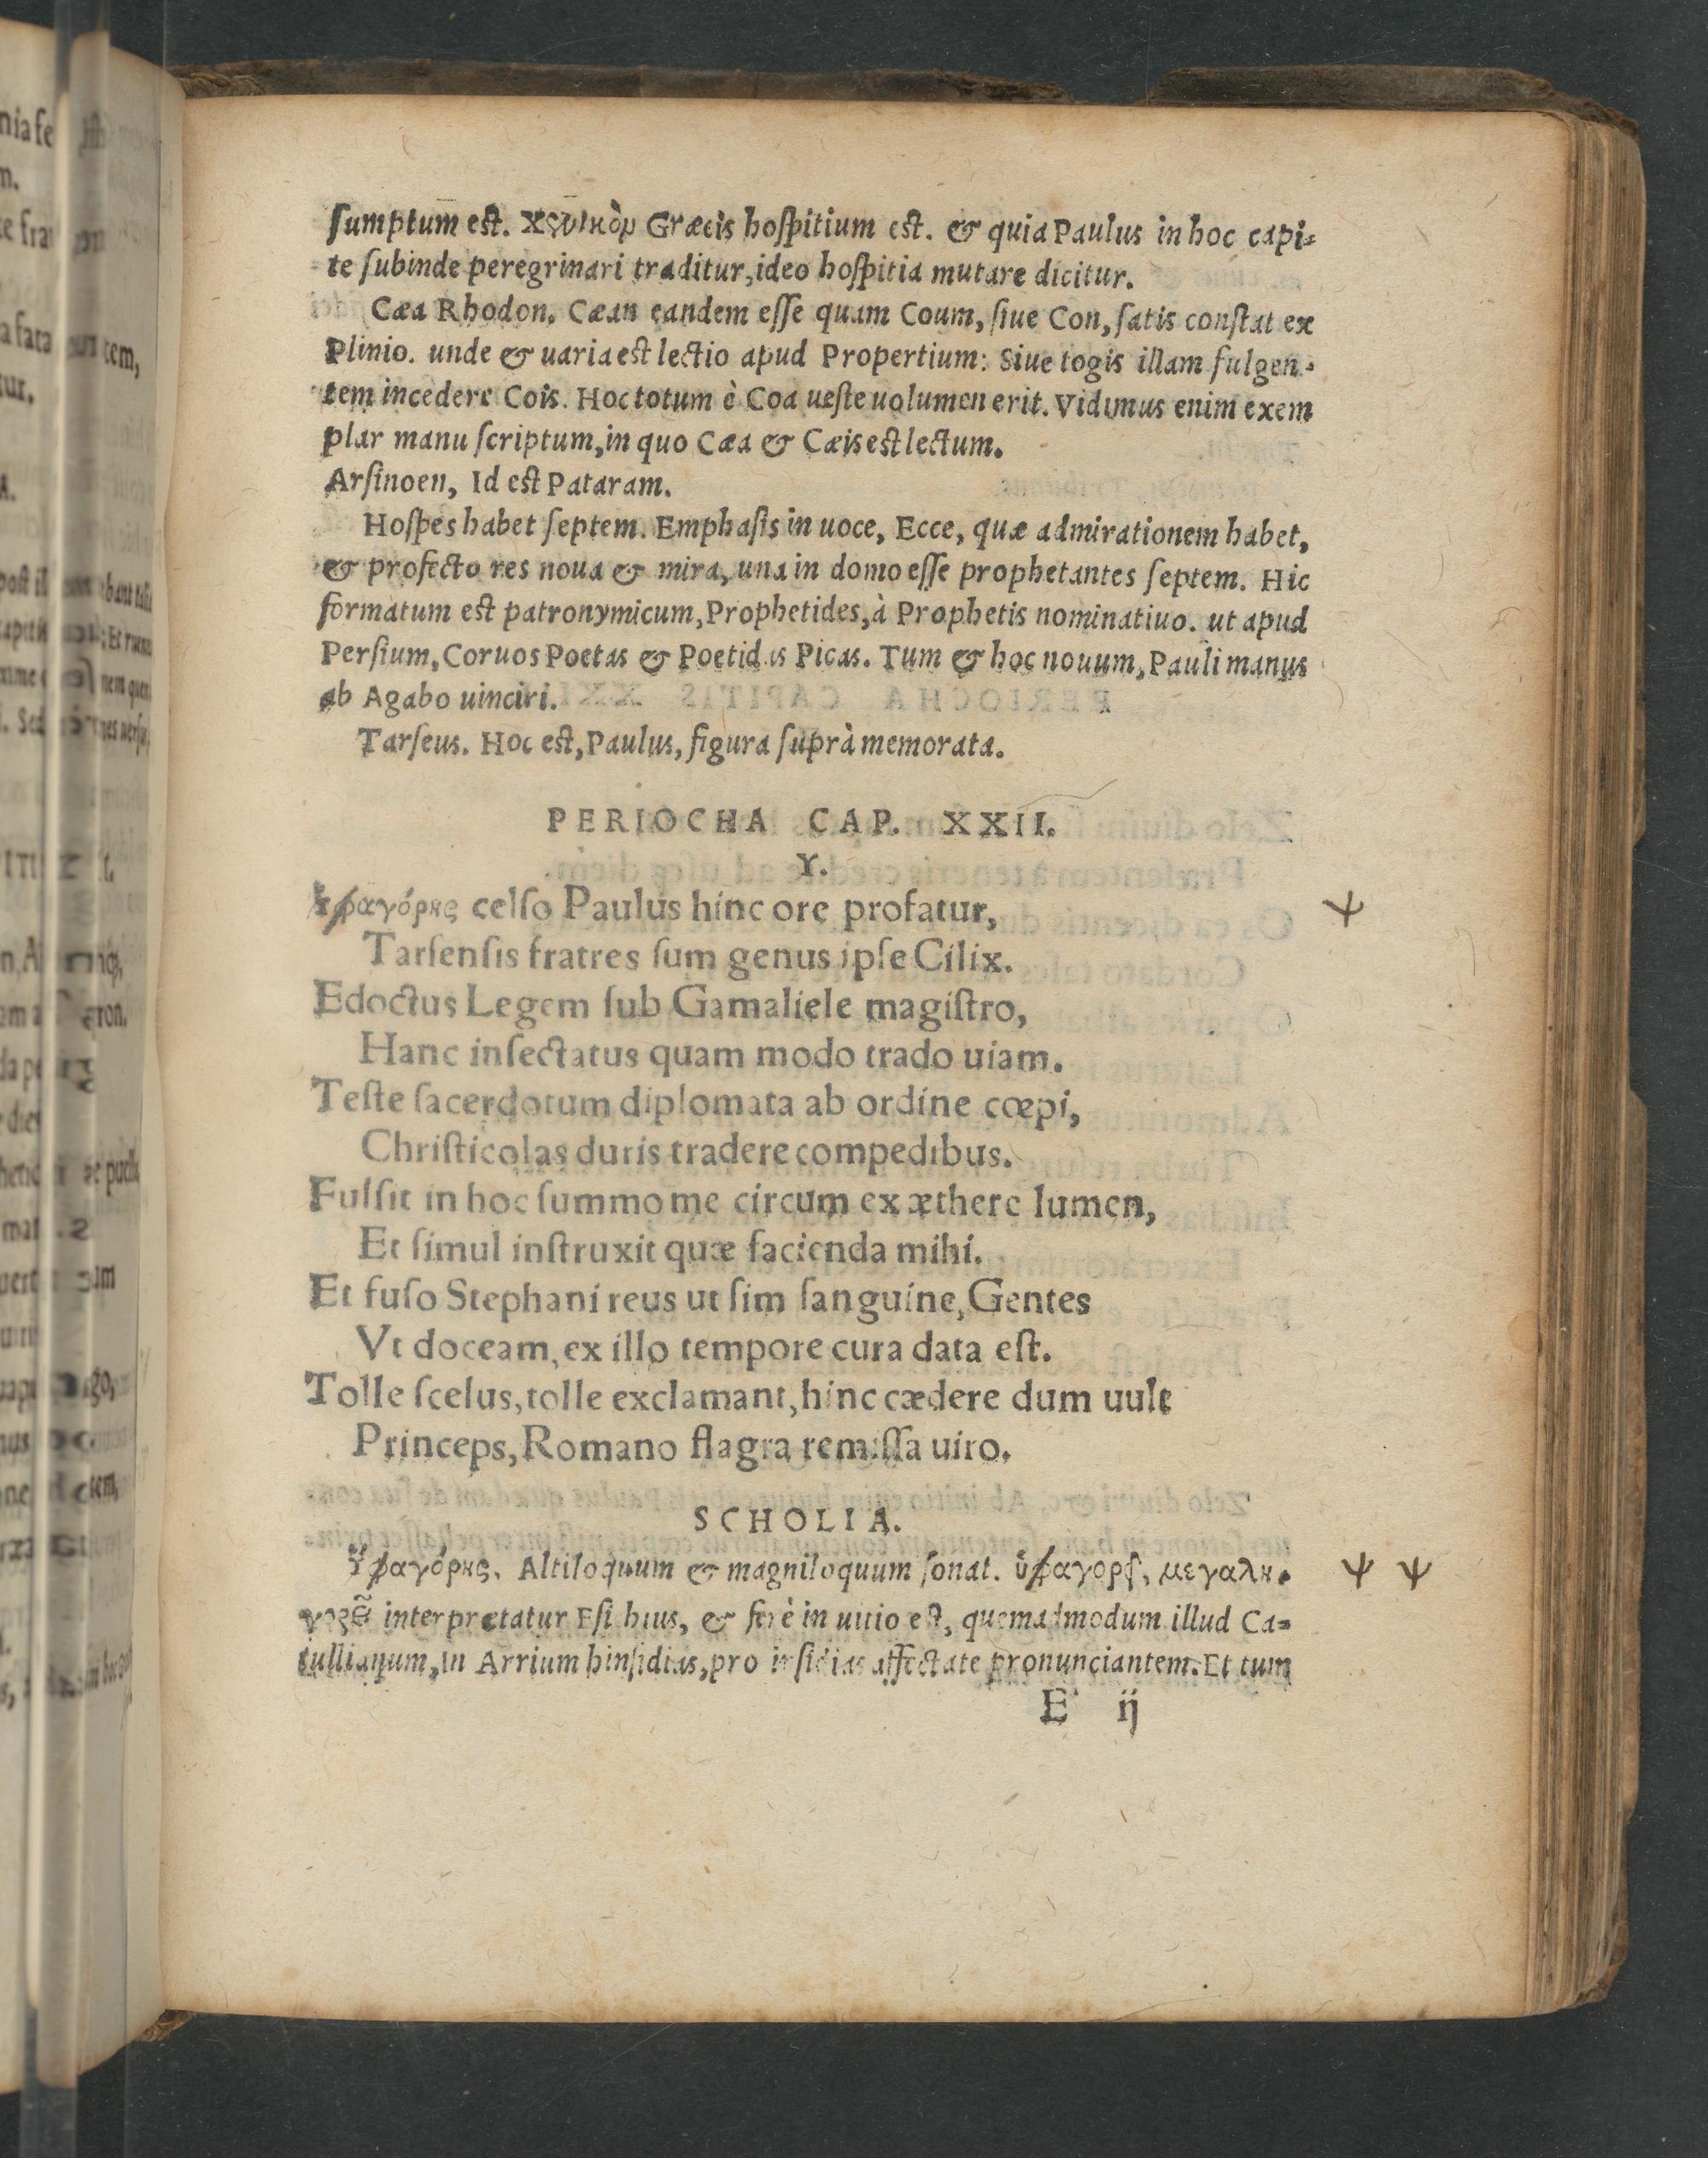 ſumptum est. Græcis hoſpitium est. & quia Paulus in hoc capi⸗
te ſubinde peregrinari traditur, ideo hoſpitia mutare dicitur.
Cæa Rhodon. Cæan eandem eſſe quam Coum, ſiue Con, ſatis conſtat ex
Plinio. unde & uaria est lectio apud Propertium: Siue togis illam fulgen⸗
tem incedere Cois. Hoc totum è Coa ueſte uolumen erit. Vidimus enim exem
plar manu ſcriptum, in quo Cæa & Cæis est lectum.
Arſinoen, Id est Pataram.
Hoſpes habet ſeptem. Emphaſis in uoce, Ecce, quæ admirationem habet,
& profecto res noua & mira, una in domo eſſe prophetantes ſeptem. Hic
formatum est patronymicum, Prophetides, à Prophetis nominatiuo. ut apud
Perſium, Coruos Poetas & Poetidas Picas. Tum & hoc nouum, Pauli manus
ab Agabo uinciri.
Tarſeus. Hoc est, Paulus, figura ſuprà memorata.
PERIOCHA CAP. XXII.
Y.
celſo Paulus hinc ore profatur,
ψ
Tarſenſis fratres ſum genus ipſe Cilix.
Edoctus Legem ſub Gamaliele magiſtro,
Hanc inſectatus quam modo trado uiam.
Teſte ſacerdotum diplomata ab ordine cœpi,
Chriſticolas duris tradere compedibus.
Fulſit in hoc ſummo me circum ex æthere lumen,
Et ſimul inſtruxit quæ facienda mihi.
Et fuſo Stephani reus ut ſim ſanguine, Gentes
Vt doceam, ex illo tempore cura data eſt.
Tolle ſcelus, tolle exclamant, hinc cædere dum uult
Princeps, Romano flagra remiſſa uiro.
SCHOLIA.
Altiloquum & magniloquum ſonat.
ψ ψ
interpretatur & ferè in uitio est, quemadmodum illud Ca⸗
tullianum, in Arrium hinſidias, pro inſidias affectate pronunciantem. Et tum
E ij